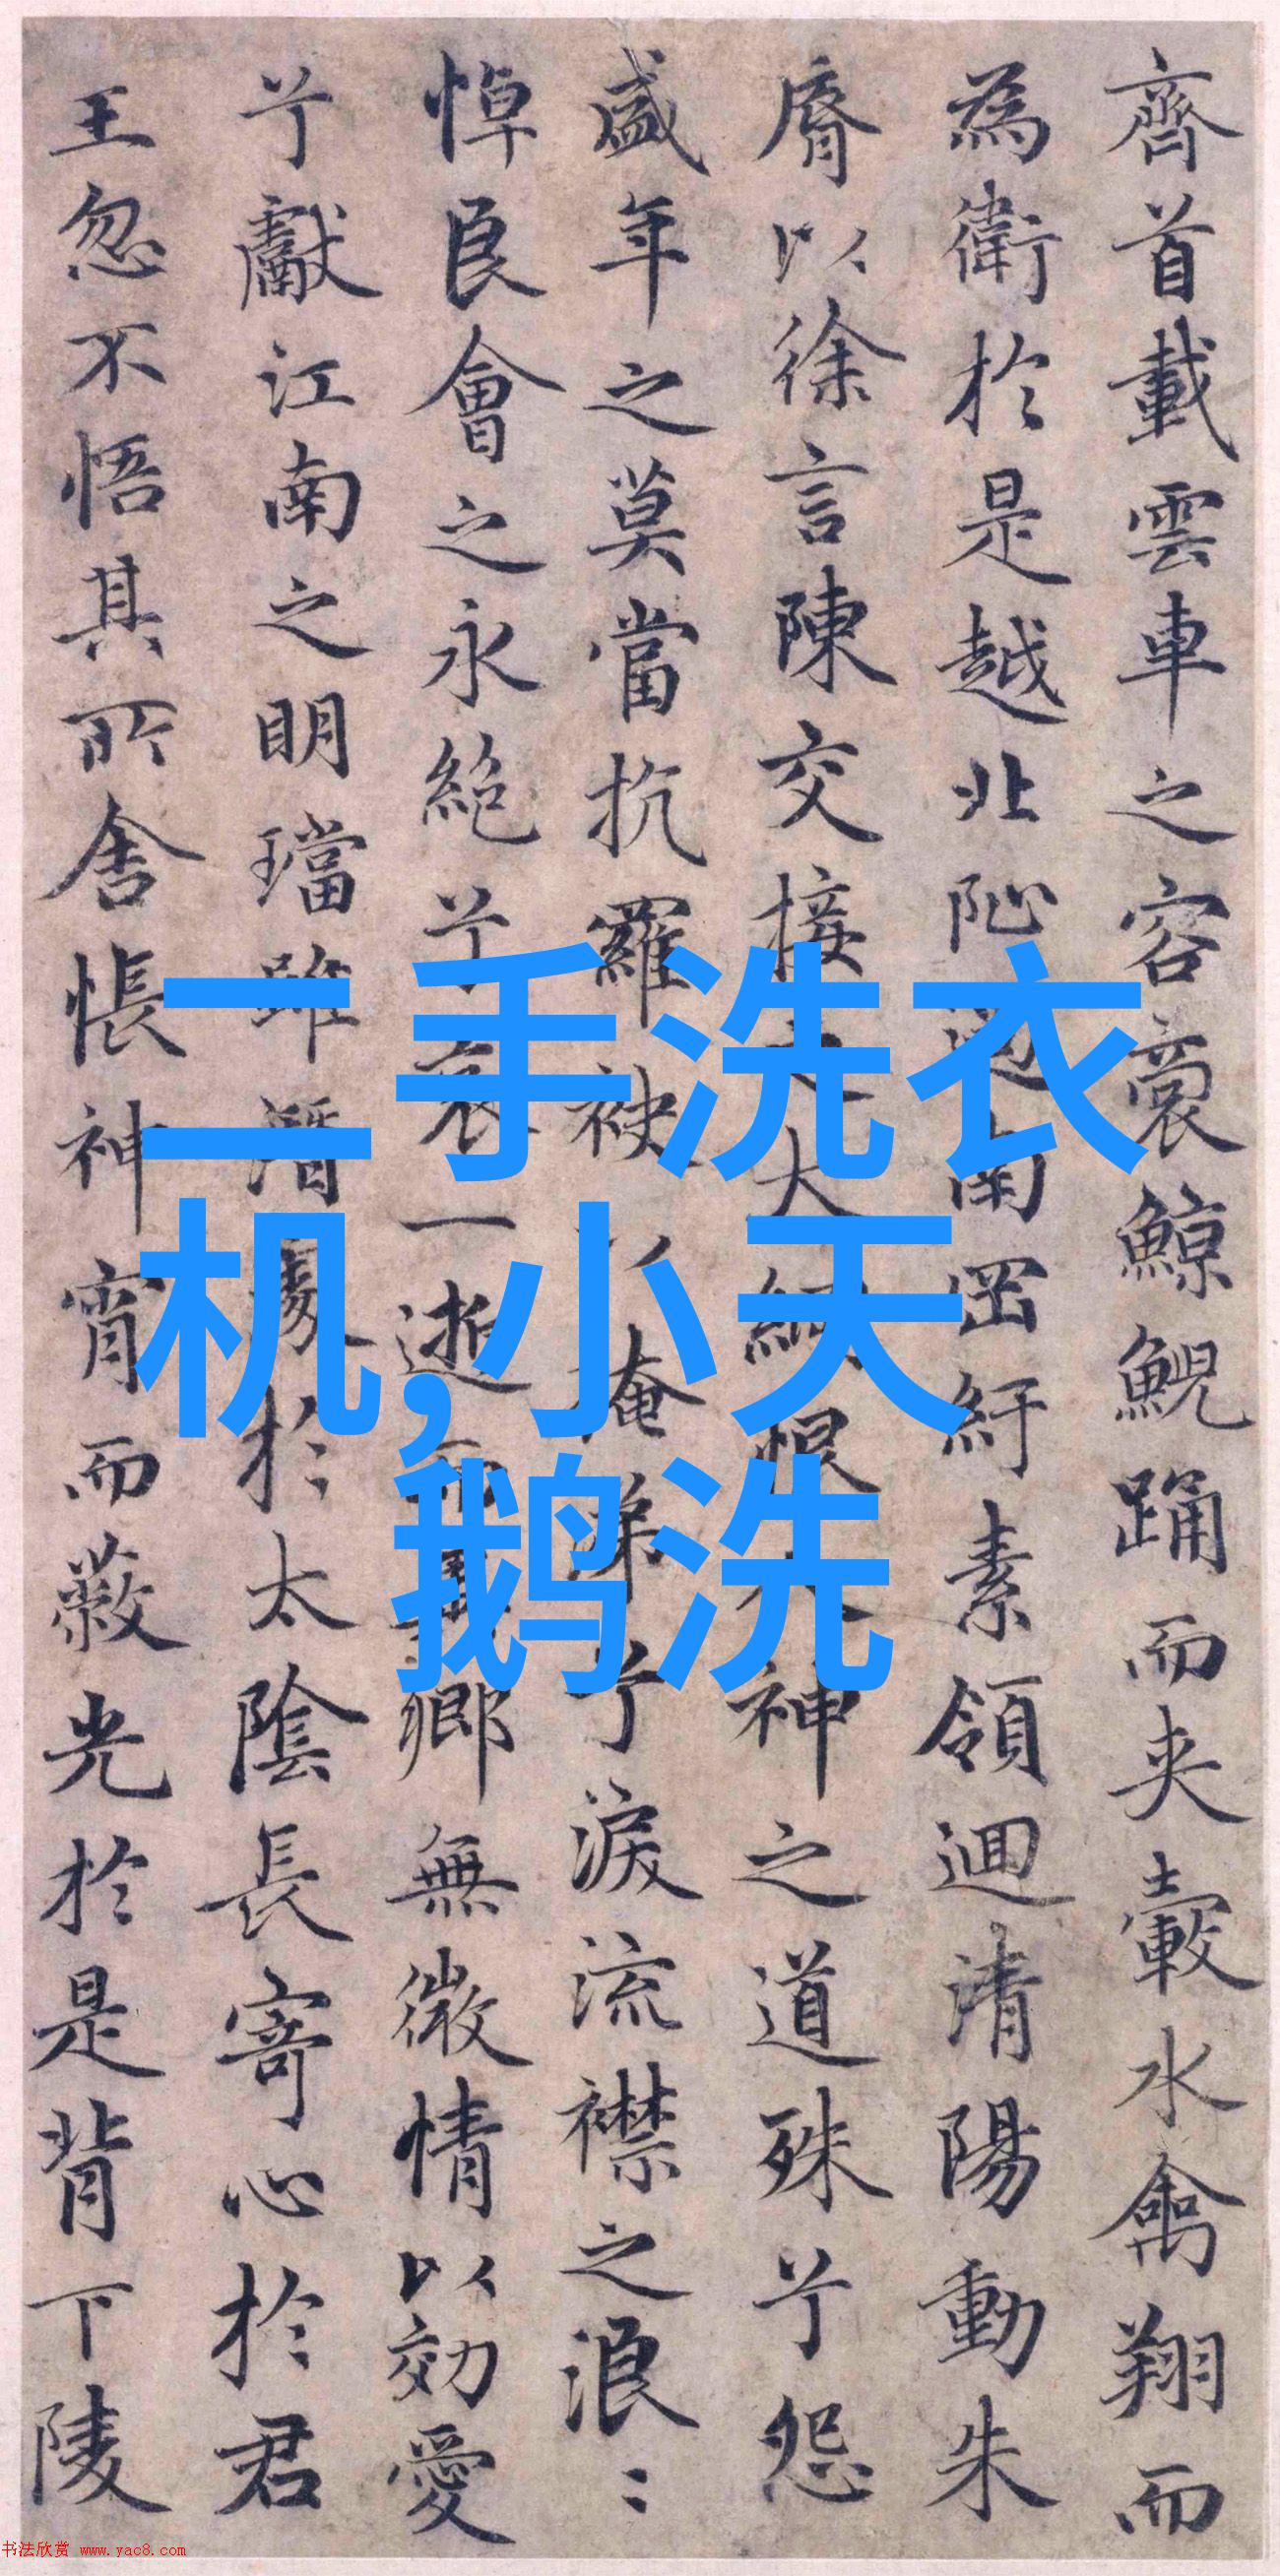 齊首載雲車之容裔鯨鯢踊而夾轂水禽翔而
為衛於是越北沚過南岡紆素領迴清陽動朱
脣以徐言陳交接之大綱恨人神之道殊兮怨
盛年之莫當抗羅袂以掩涕兮淚流襟之浪〻
悼良會之永絕兮哀一逝而異鄉無微情以効愛
兮獻江南之明璫雖潛處於太陰長寄心於君
王忽不悟其所舍悵神宵而蔽光於是背下陵
二手洗衣
机,小天
鹅洗
书法欣赏 www.yac8.com